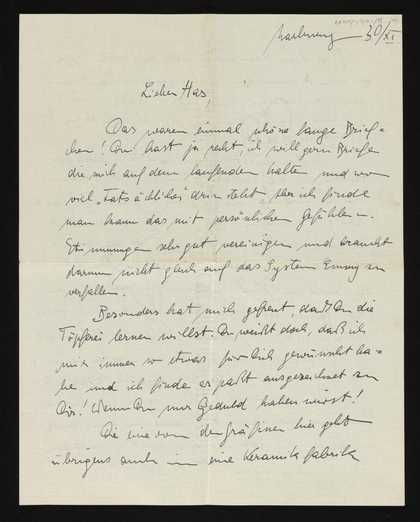 30/XI
Lieber Has,
Das waren einmal schöne lange Brief-
chen! Du hast ja recht, ich will gern Briefe
die mich auf dem laufenden halten und wo
viel „Tatsächliches" drin steht aber ich finde
man kann das mit persönlichen Gefühlen u.
Stimmungen sehr gut vereinigen und braucht
darum nicht gleich auf das System zu
verfallen.
Besonders hat mich gefreut, daß Du die
Töpferei lernen willst. Du weißt doch, daß ich
mir immer so etwas für Dich gewünscht ha-
be und ich finde es paßt ausgezeichnet zu
Dir! Wenn Du nur Geduld haben wirst!
Die eine von den Gräfinen hier geht
übrigens auch in eine Keramik fabrik